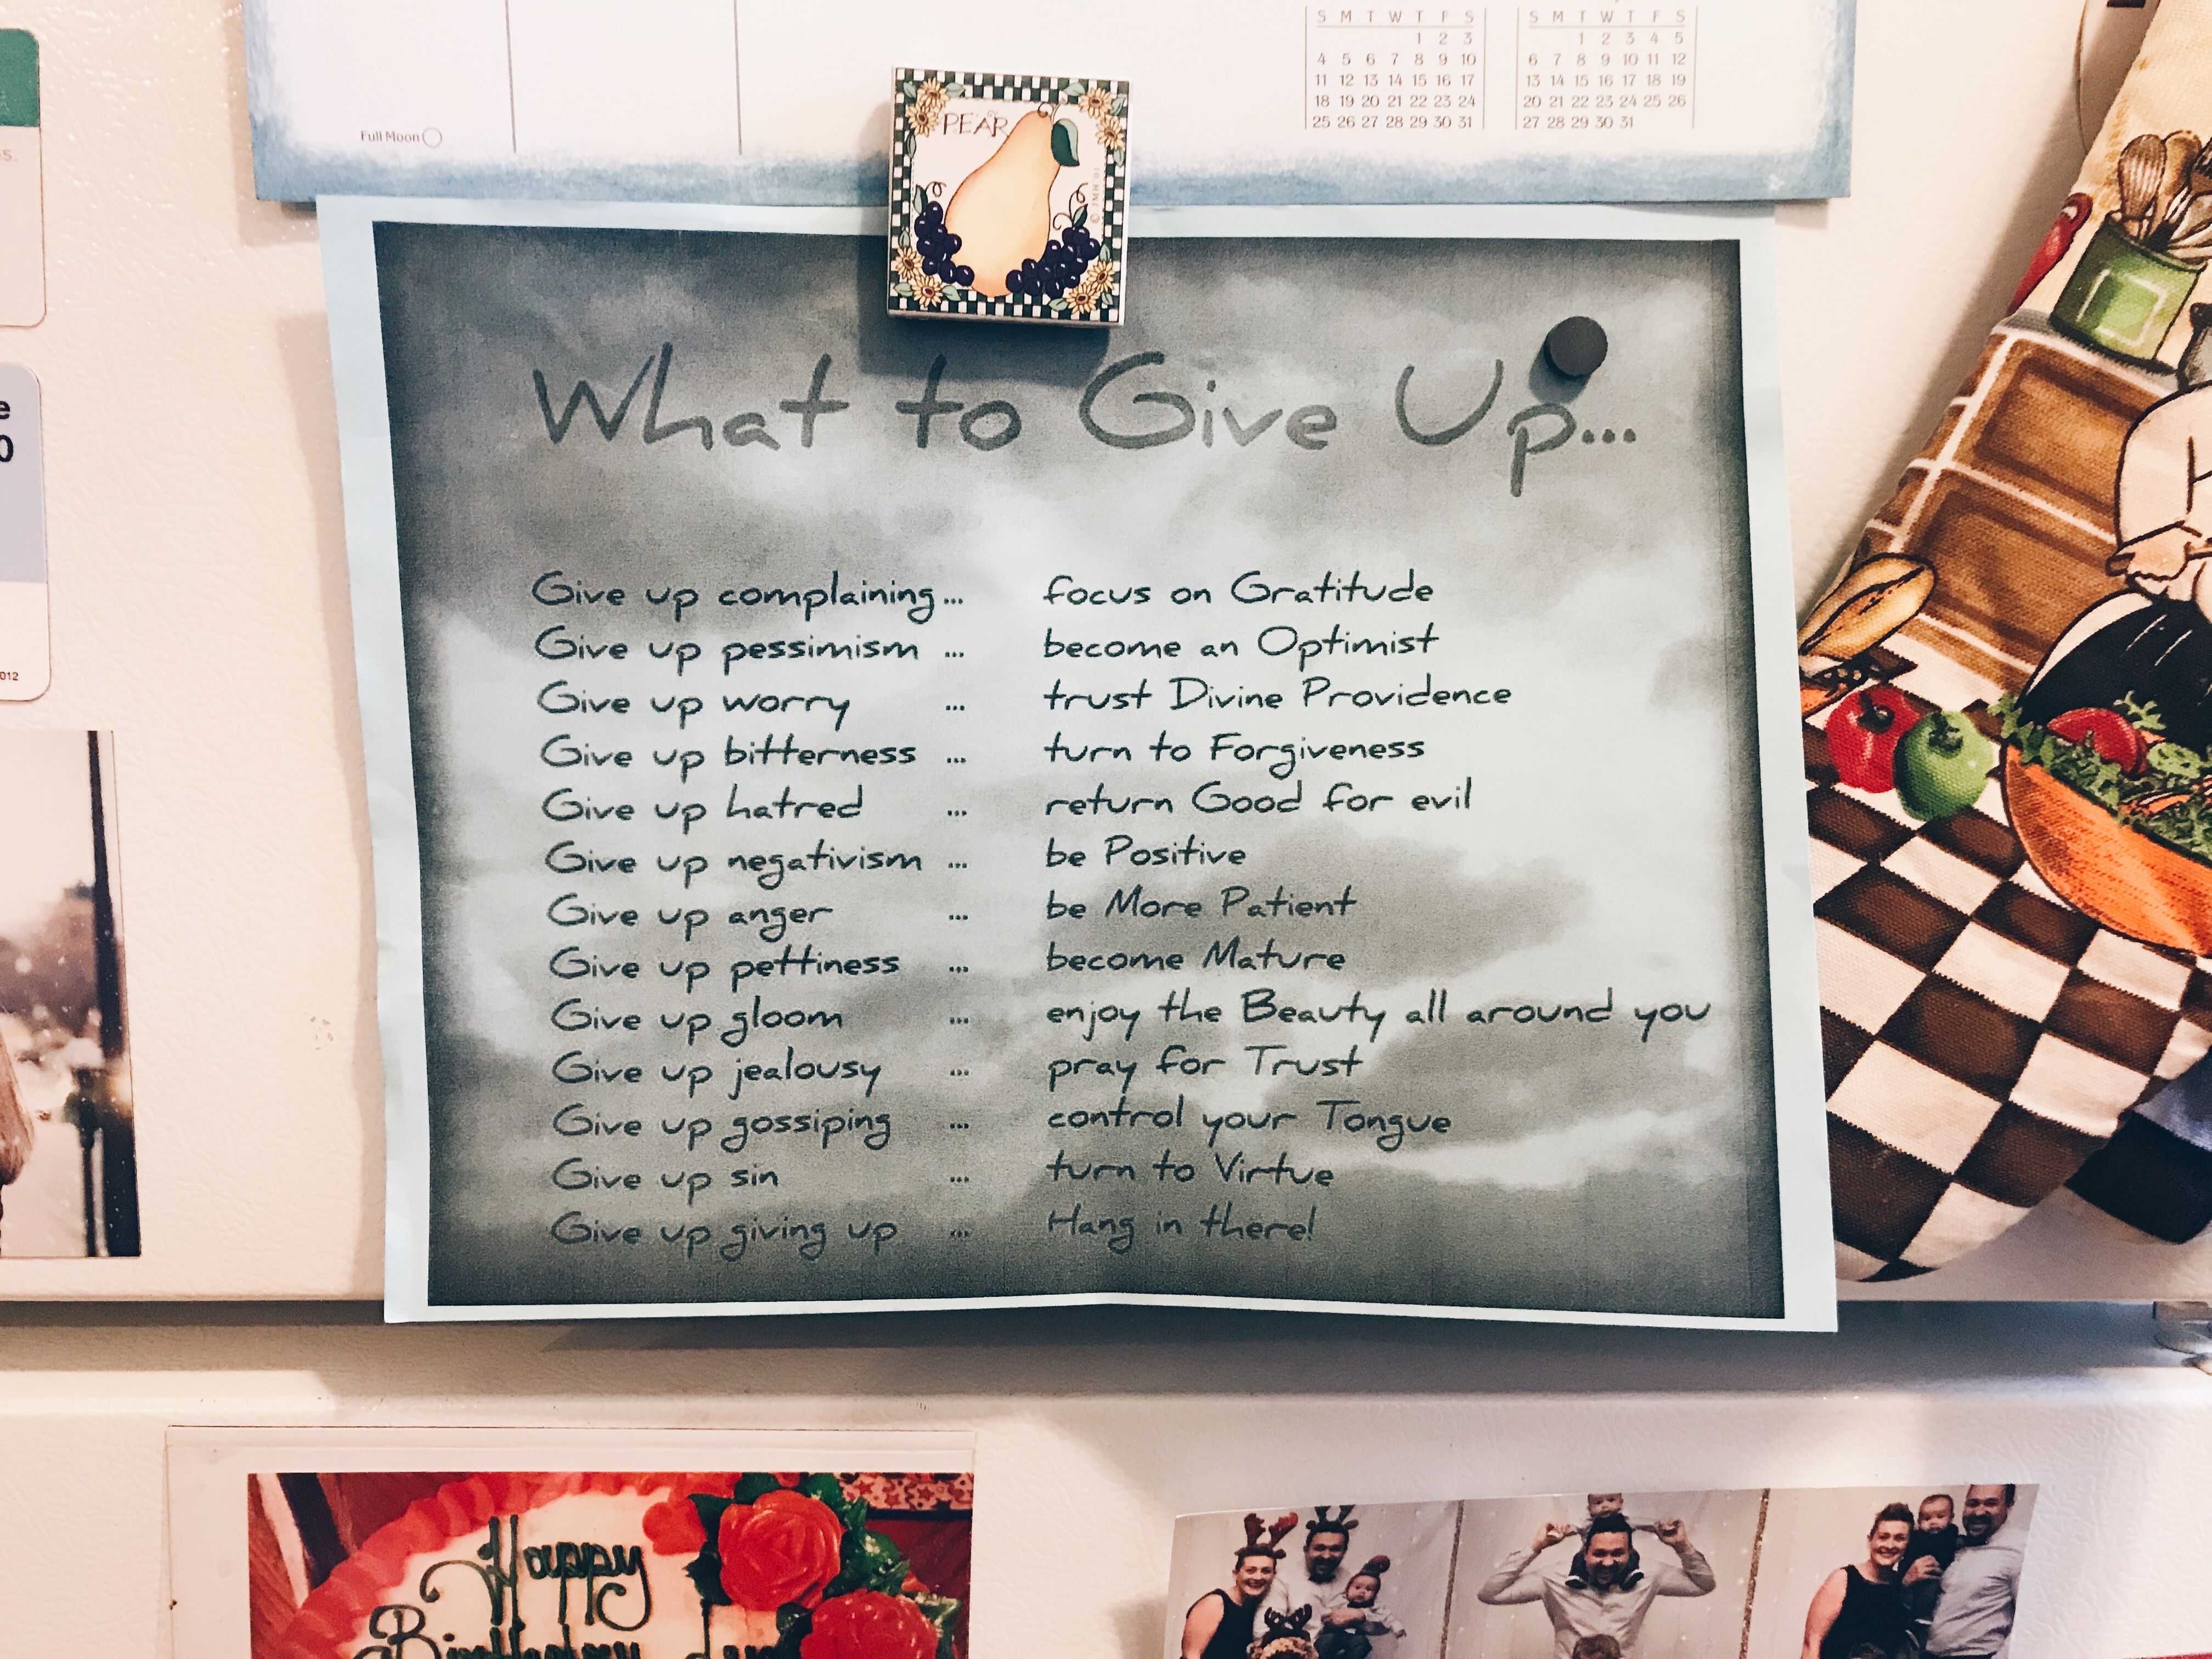 S M T W T F S
1 2 3
4 5 6 7 8 9 10
11 12 13 14 15 16 17
18 19 20 21 22 23 24
25 26 27 28 29 30 31
S M T W T F S
1 2 3 4 5
6 7 8 9 10 11 12
13 14 15 16 17 18 19
20 21 22 23 24 25 26
27 28 29 30 31
Full Moon
PEAR
What to Give Up...
Give up complaining... focus on Gratitude
Give up pessimism ... become an Optimist
Give up worry ... trust Divine Providence
Give up bitterness ... turn to Forgiveness
Give up hatred ... return Good for evil
Give up negativism ... be Positive
Give up anger ... be More Patient
Give up pettiness ... become Mature
Give up gloom ... enjoy the Beauty all around you
Give up jealousy ... pray for Trust
Give up gossiping ... control your Tongue
Give up sin ... turn to Virtue
Give up giving up ... Hang in there!
012
Happy
Birthday